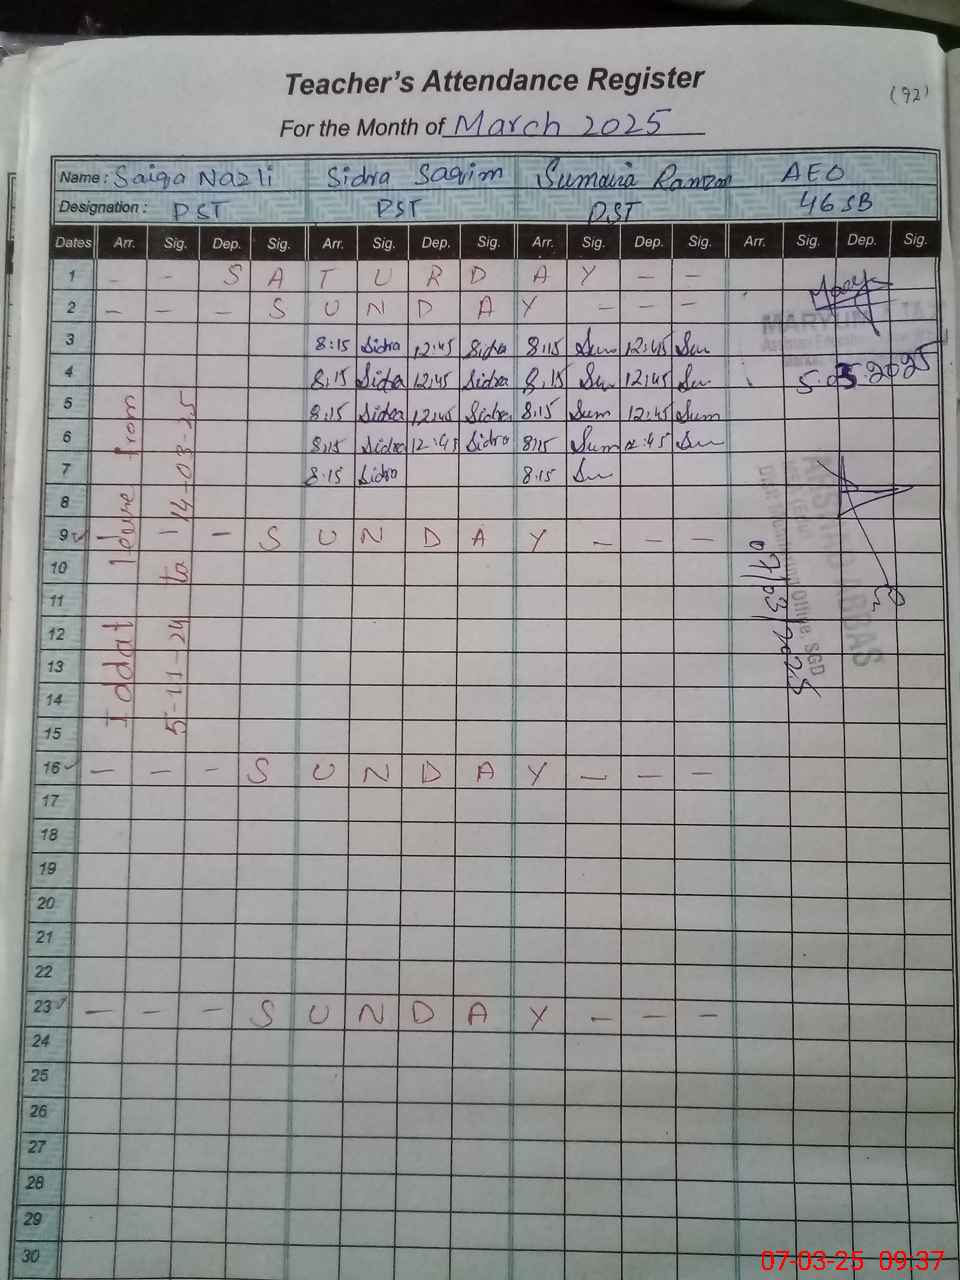 Teacher's Attendance Register
(92)
For the Month of March 2025
Name : Saiqa Nazli Sidra Saqim Sumaira Ramzan AEO
Designation : PST PST PST 46 SB
Dates Arr. Sig. Dep. Sig. Arr. Sig. Dep. Sig. Arr. Sig. Dep. Sig. Arr. Sig. Dep. Sig.
1 - - S A T U R D A Y - -
2 - - - S U N D A Y - - -
3 8:15 Sidra 12:45 Sidra 8:15 Sum 12:45 Su
4 8:15 Sidra 12:45 Sidra 8:15 Su 12:45 Su
5.03.2025
5 8:15 Sidra 12:45 Sidra 8:15 Sum 12:45 Sum
6 8:15 Sidra 12:45 Sidra 8:15 Sum 12:45 Su
7 8:15 Sidra 8:15 Su
8
9 - S U N D A Y - - -
10
11
12
13
14
15
16 - - - S U N D A Y - - -
17
18
19
20
21
22
23 - - - S U N D A Y - - -
24
25
26
27
28
29
30
Iddat leave from
5-11-24 to 14-03-25
MARYUM
ABBAS
Office, SGD
07/03/2025
07-03-25 09:37